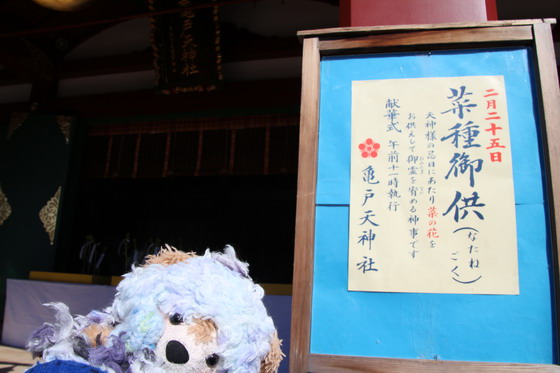 二月二十五日
菜種御供(なたねごく)
天神様の忌日にあたり菜の花を
お供えして御霊を宥める神事です
献華式 午前十一時執行
亀戸天神社